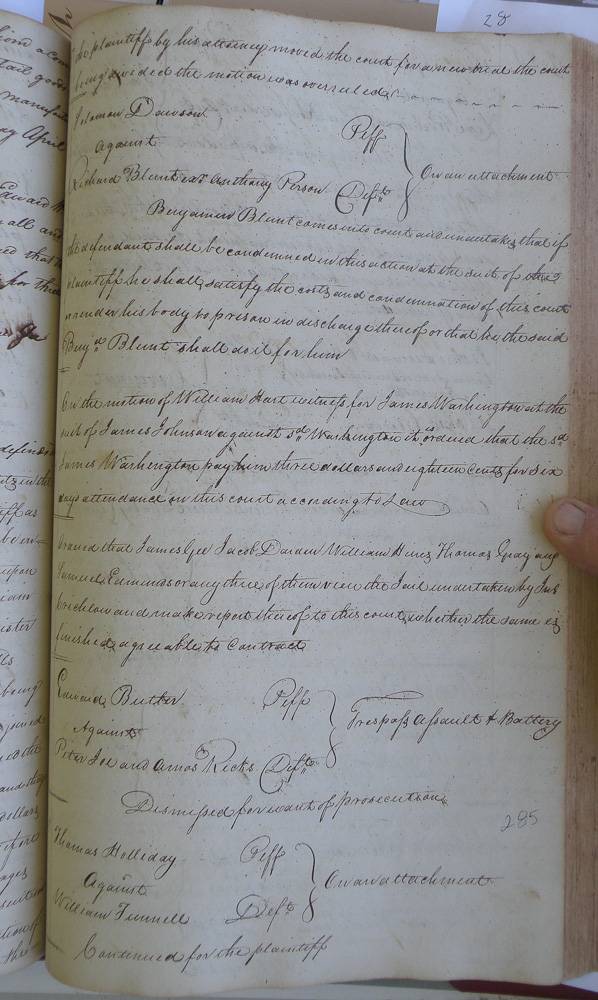 28
the plaintiff by his attorney moved the court for a new trial the court
being divided the motion was overruled
Solomon Dawson
Plff
Against
On an attachment
Richard Blunt exr Anthony Person Deft
Benjamin Blunt comes into court and undertakes that if
the defendant shall be condemned in this action at the suit of the
plaintiff he shall satisfy the costs and condemnation of this court
or render his body to prison in discharge thereof or that he the said
Benjn Blunt shall do it for him
On the motion of William Hart witness for James Washington at the
suit of James Johnson against sd Washington it is ordered that the sd
James Washington pay him three dollars and eighteen Cents for Six
days attendance on this court according to Law
Ordered that James Gee Jacob Darden William Hines Thomas Gray and
Samuel Edmunds or any three of them view the Jail undertaken by
Crichlow and make report thereof to this court whether the same is
finished agreeable to Contract
Edward Butler Plff
Against
Trespass Assault & Battery
Peter Joe and Amos Ricks Defts
Dismissed for want of prosecution
285
Thomas Holliday Plff
Against
On an attachment
William Funnell Deft
Continued for the plaintiff